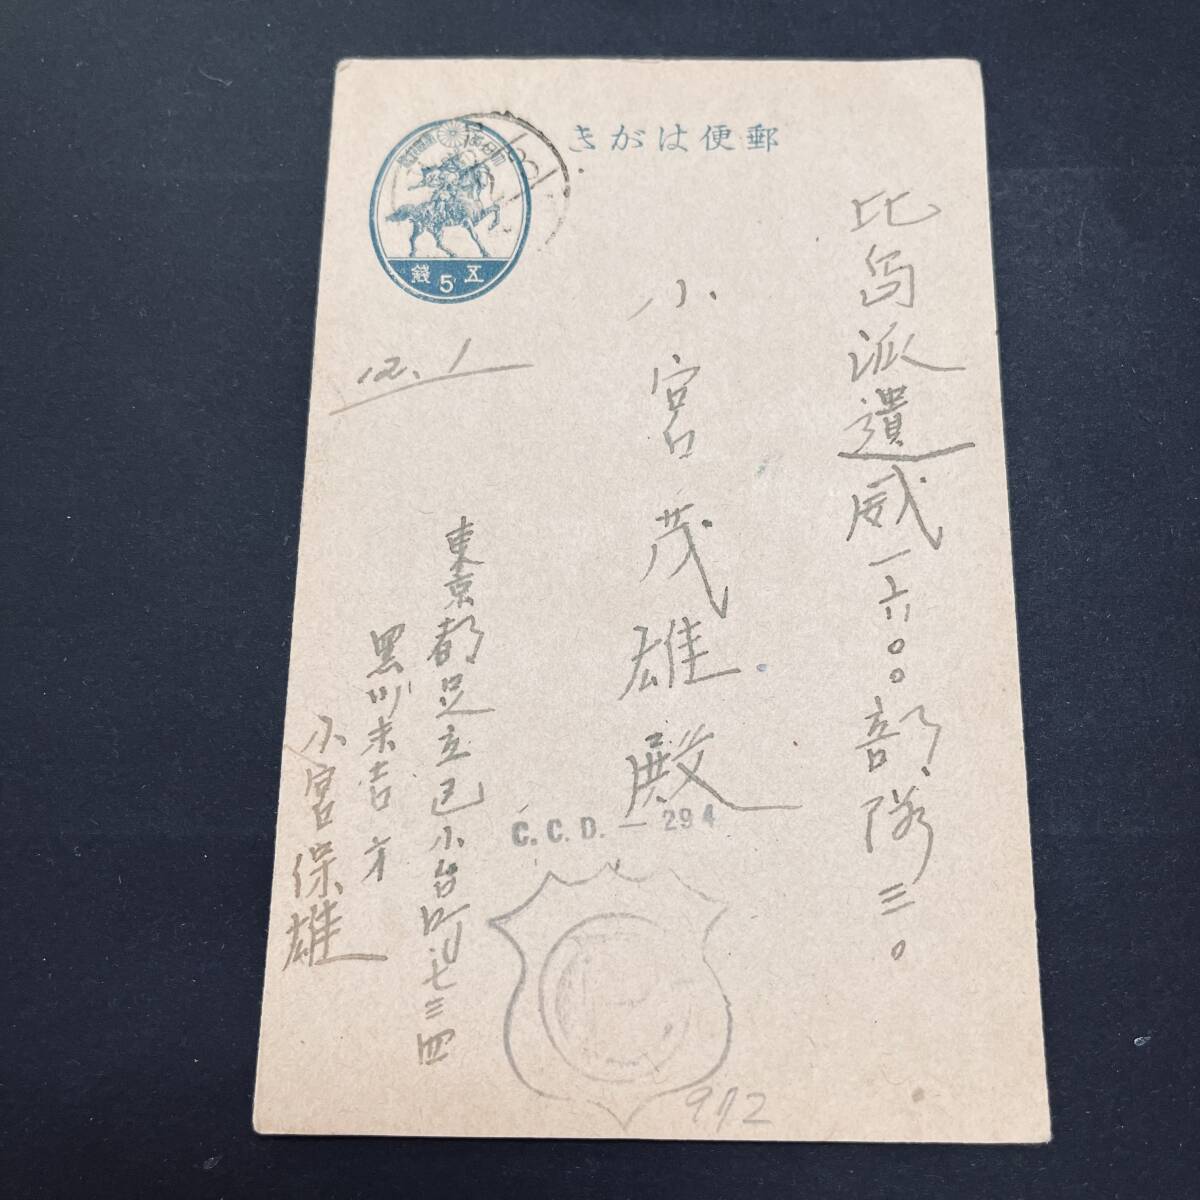 郵便はがき
五5錢
比島派遣威一六〇〇部隊三〇
小宮茂雄殿
12.1
東京都足立区小台町七三四
黒川末吉方
小宮保雄
C.C.D.—294
972